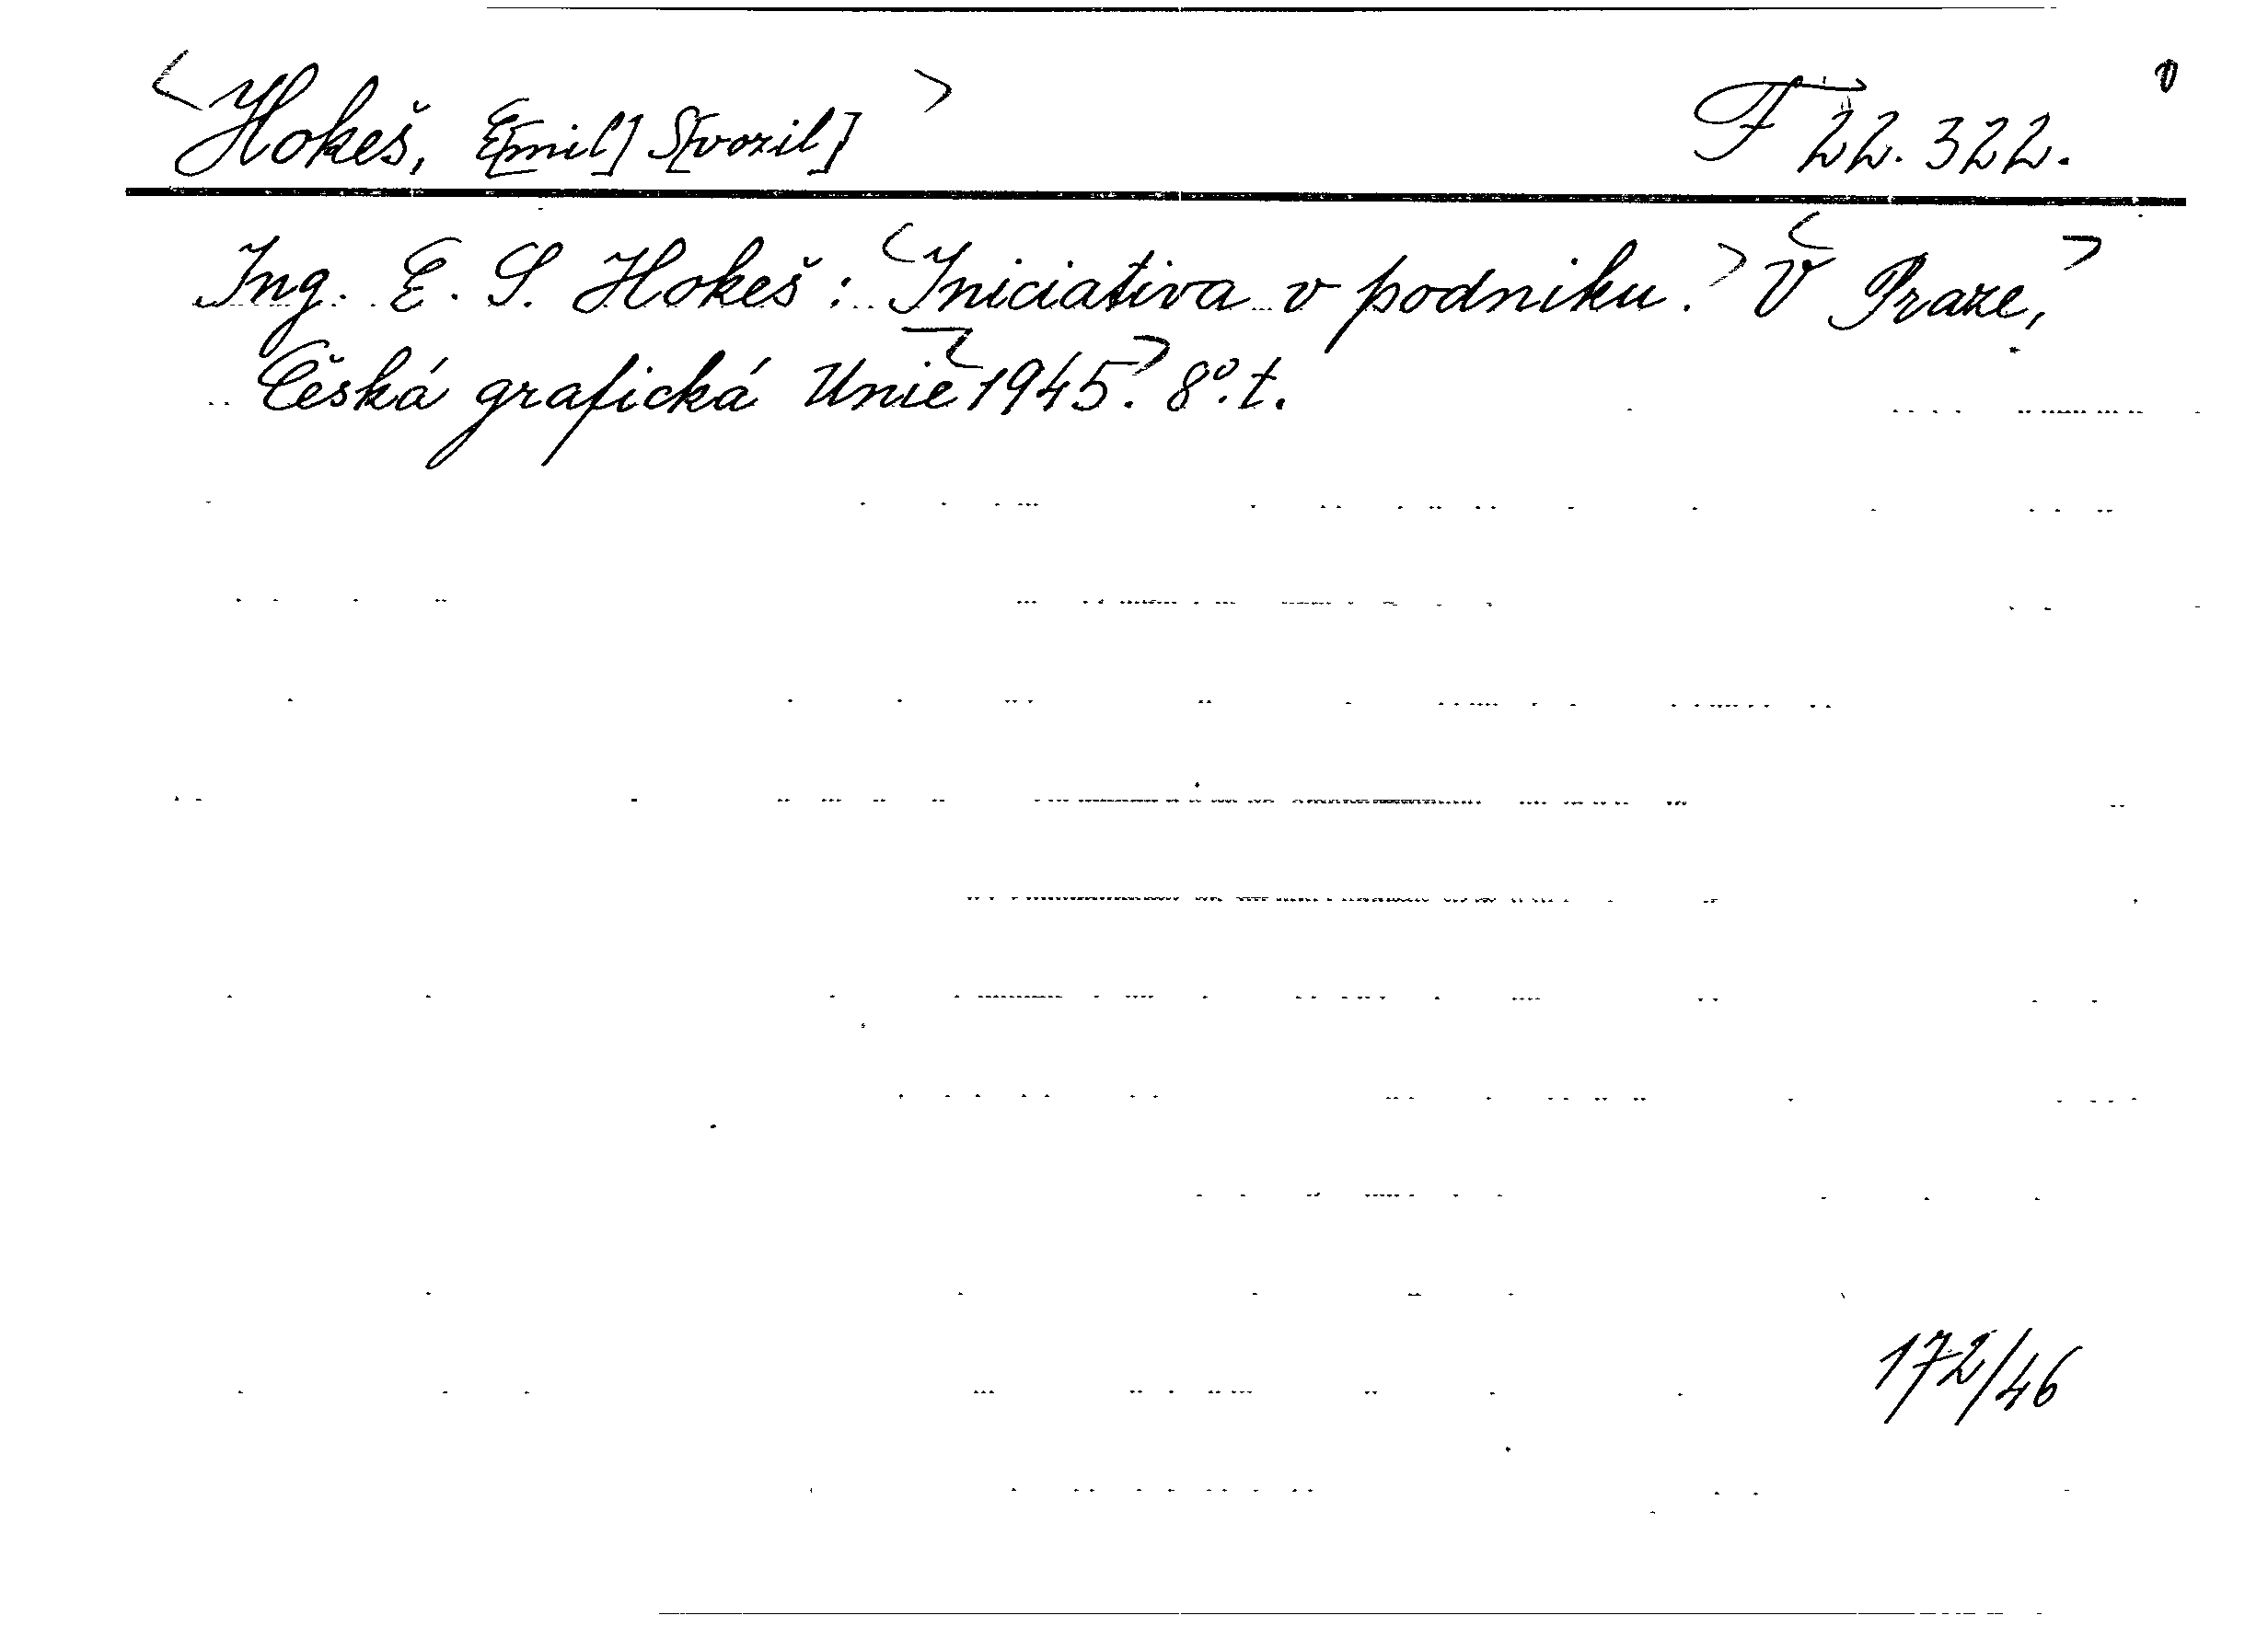 <Hokeš, E[mil] S[vozil]> F 22.322. v
Ing. E. S. Hokeš: <Iniciativa v podniku.> <V Praze,>
Česká grafická Unie <1945.> 8°. t.
172/46